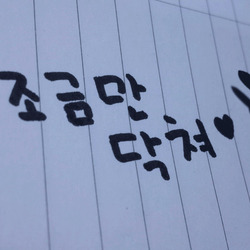 조금만
닥쳐♥